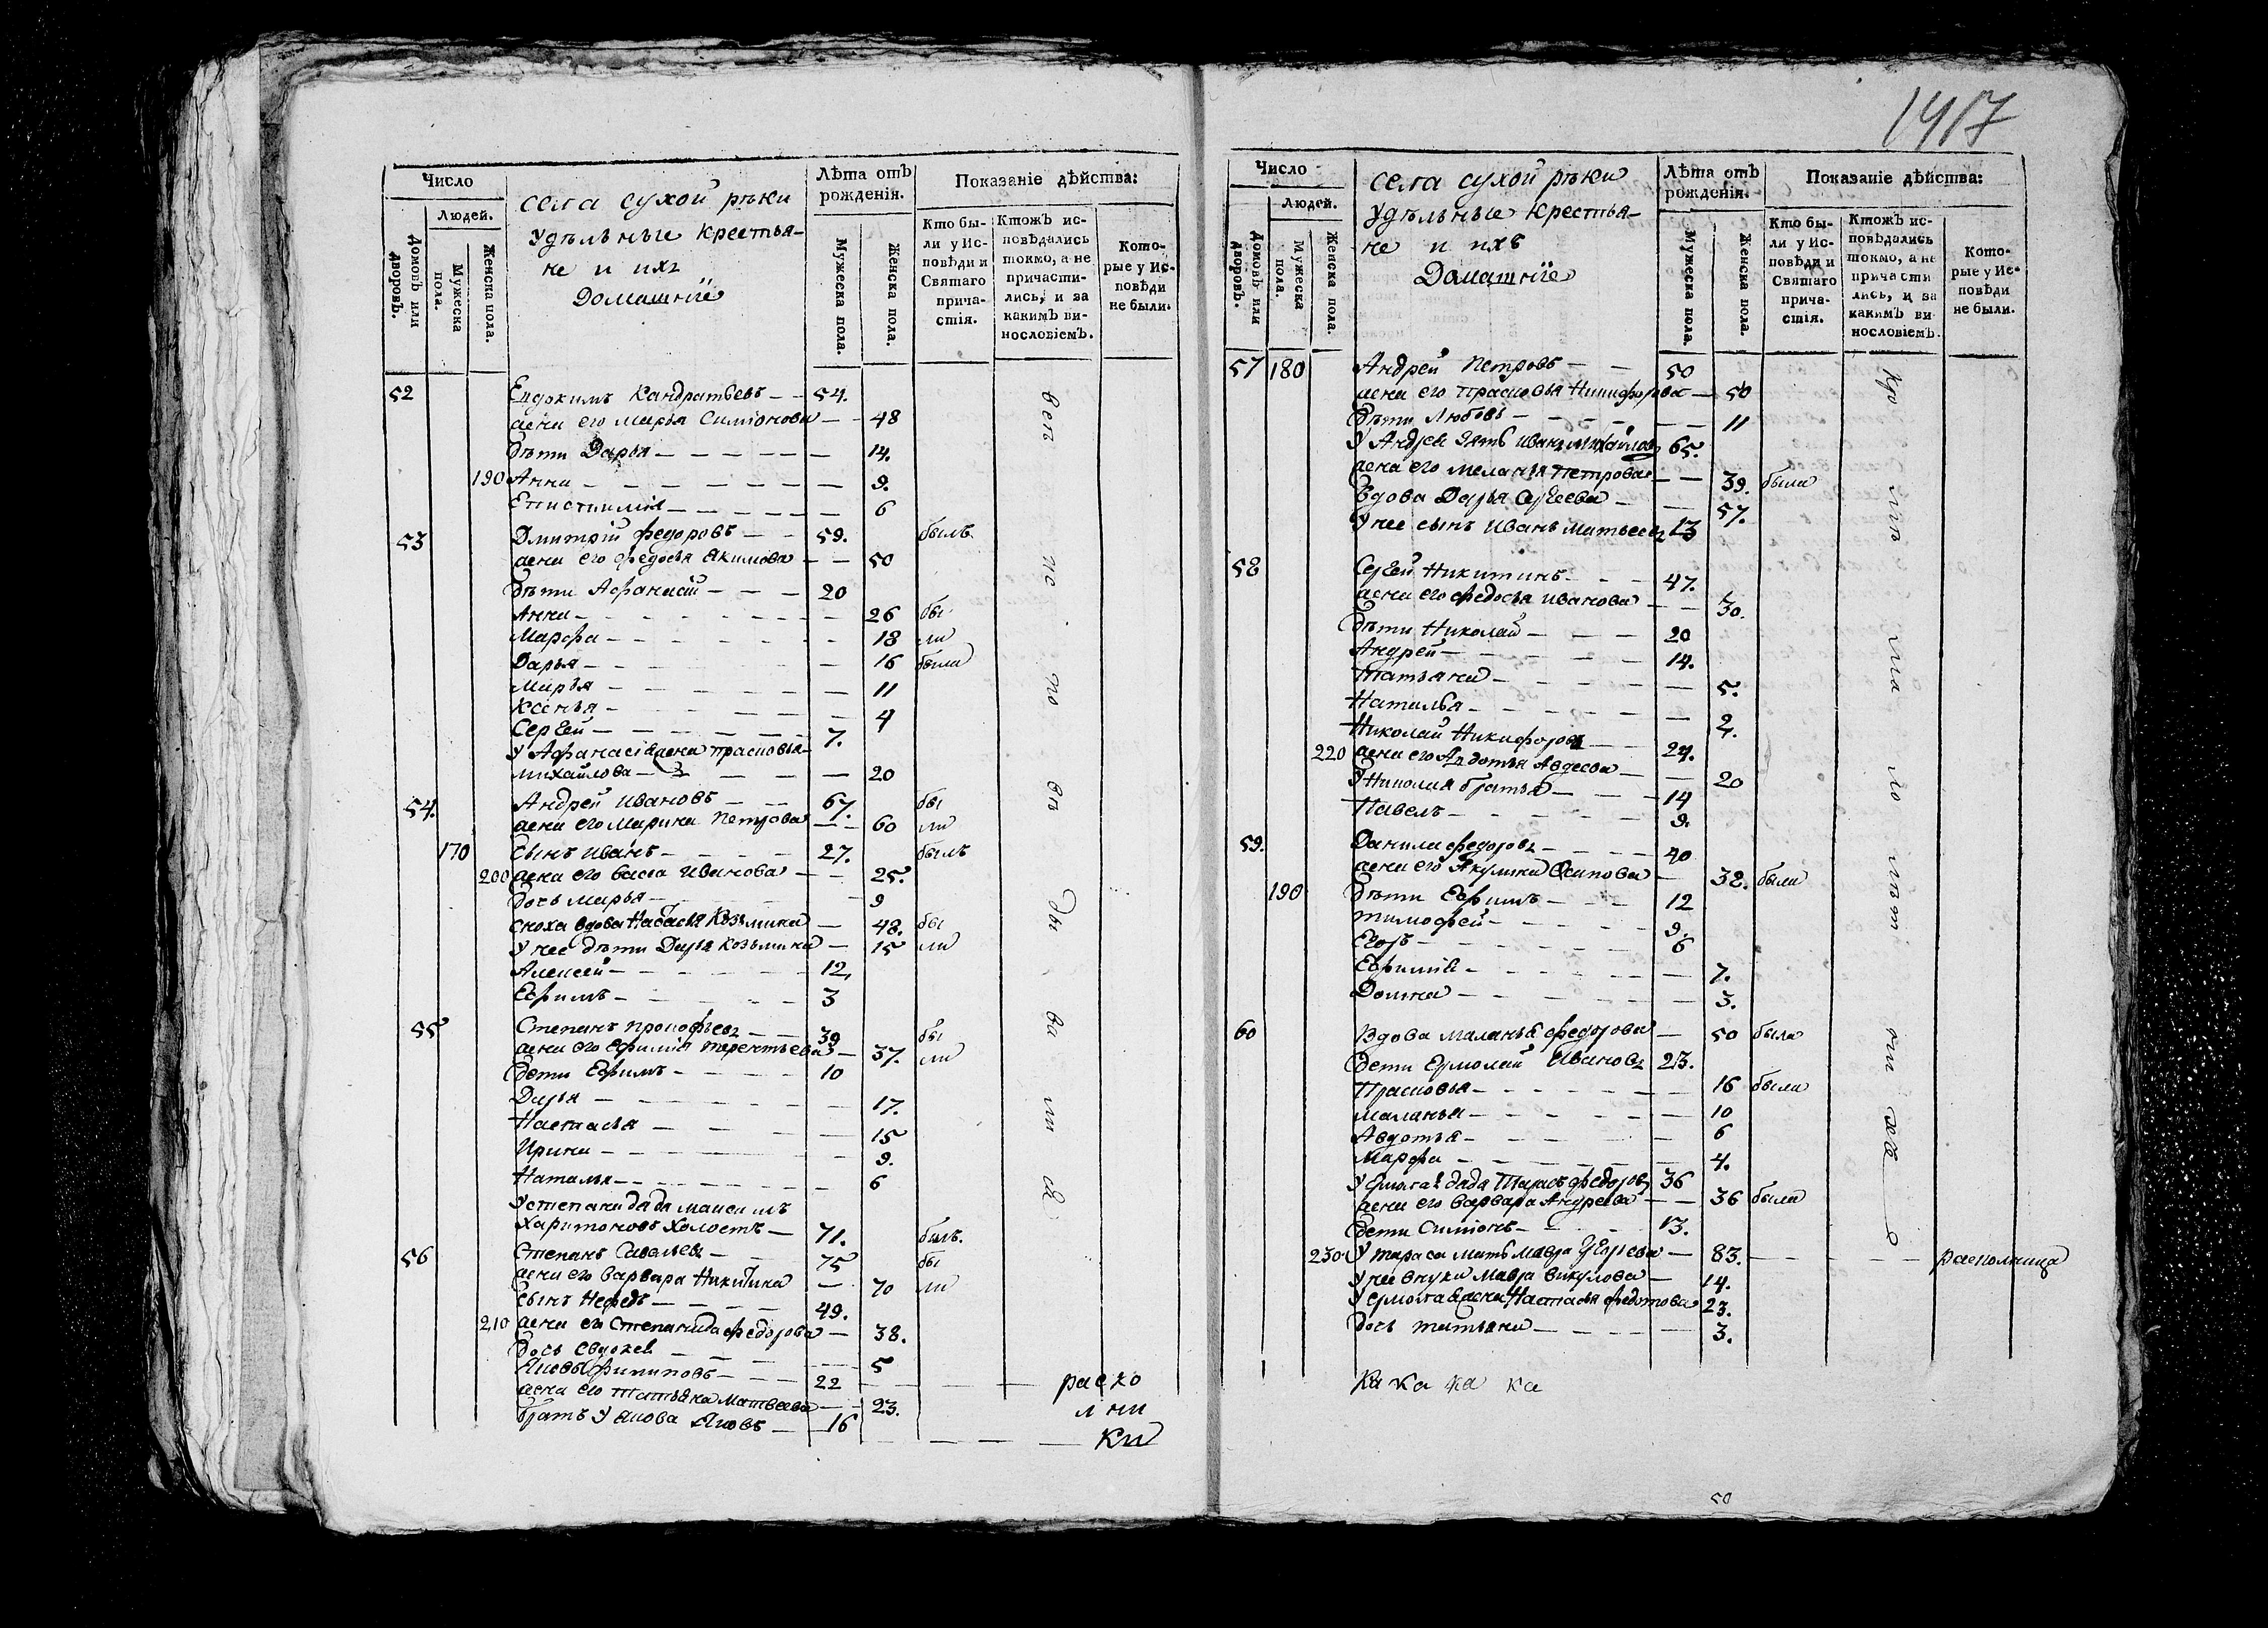 1417
Число
Людей.
Домовъ или дворовъ.
Мужеска пола.
Женска пола.
села сухой рѣки
удѣльные крестья-
не и ихъ
Домашніе
Лѣта отъ рожденія.
Мужеска пола.
Женска пола.
Показаніе дѣйства:
Кто бы-
ли у Ис-
повѣди и
Святаго
прича-
стія.
Ктожъ ис-
повѣдались
токмо, а не
причасти-
лись, и за
какимъ ви-
нословіемъ.
Кото-
рые у Ис-
повѣди
не были.
52 Евдокимъ Кандратьевъ 54.
жена его марья Симіонова 48
дѣти Дарья 14.
190 Анна 9.
Епистимія 6
53 Дмитрій федоровъ 59. былъ
жена его федосья Якимова 50
дѣти Афанасій 20
Анна 26 бы
Марфа 18 ли
Дарья 16 была
Марья 11
Ксенья 4
Сергей 7.
у Афанасія жена прасковья
михайлова 20
54. Андрей ивановъ 67. бы
жена его Марина Петрова 60 ли
170 сынъ иванъ 27. былъ
200 жена его васса Иванова 25.
дочь марья 9
сноха вдова Настасья Козмина 48. бы
у нее дѣти Дарья козьмина 15 ли
Алексей 12,
Ефимъ 3
55 Степанъ прокофьевъ 39 бы
жена его ефимія терентьева 37. ли
дети Ефимъ 10
Дарья 17.
Настасья 15
Ирина 9.
Наталья 6
у степана дядя максимъ
харитоновъ холостъ 71. былъ.
56 Степанъ Савельевъ 75 бы
жена его варвара Никитина 70 ли
сынъ Нефедъ 49.
210 жена ев Степанида федорова 38.
дочь евдокея 5
Яковъ филиповъ 22 раско
жена его татьяна матвеева 23. льни
братъ у якова Яковъ 16 ки
Число
Людей.
Домовъ или дворовъ.
Мужеска пола.
Женска пола.
села сухой рѣки
удѣльные крестья-
не и ихъ
Домашніе
Лѣта отъ рожденія.
Мужеска пола.
Женска пола.
Показаніе дѣйства:
Кто бы-
ли у Ис-
повѣди и
Святаго
прича-
стія.
Ктожъ ис-
повѣдались
токмо, а не
причасти
лись, и за
какимъ ви
нословіемъ.
Кото-
рые у Ис-
повѣди
не были.
57 180 Андрей Петровъ 50
жена его прасковья Никифорова 50
дѣти Любовь 11
у Андрея зять иванъ михайловъ 65.
жена его меланья петрова 39. была
вдова Дарья сергеева 57.
у нее сынъ иванъ матвеевъ 13
58 Сергей Никитинъ 47.
жена его федосья иванова 30.
дѣти Николай 20
Андрей 14.
татьяна 5.
Наталья 2.
Николай Никифоровъ 24.
220 жена его Авдотья Авдеева 20
у Николая братья 14
Павелъ 9.
59. Данила федоровъ 40
жена его Акулина Осипова 38. была
190 дѣти Ефимъ 12
тимофей 9.
Егоръ 6
Ефимія 7.
Домна 3.
60 Вдова маланья федорова 50 была
дети Ермолай Ивановъ 23.
Прасковья 16 была
маланья 10
Авдотья 6
Марфа 4.
у Ермолая дядя Тарасъ федоровъ 36
жена его варвара Андреева 36 была
дети Симіонъ 13.
230 у тараса мать мавра Егорьева 83. раскольница
у нее внука мавра викулова 14.
у ермолая жена Настасья федотова 23.
дочь татьяна 3.
ка ка ка ка
50